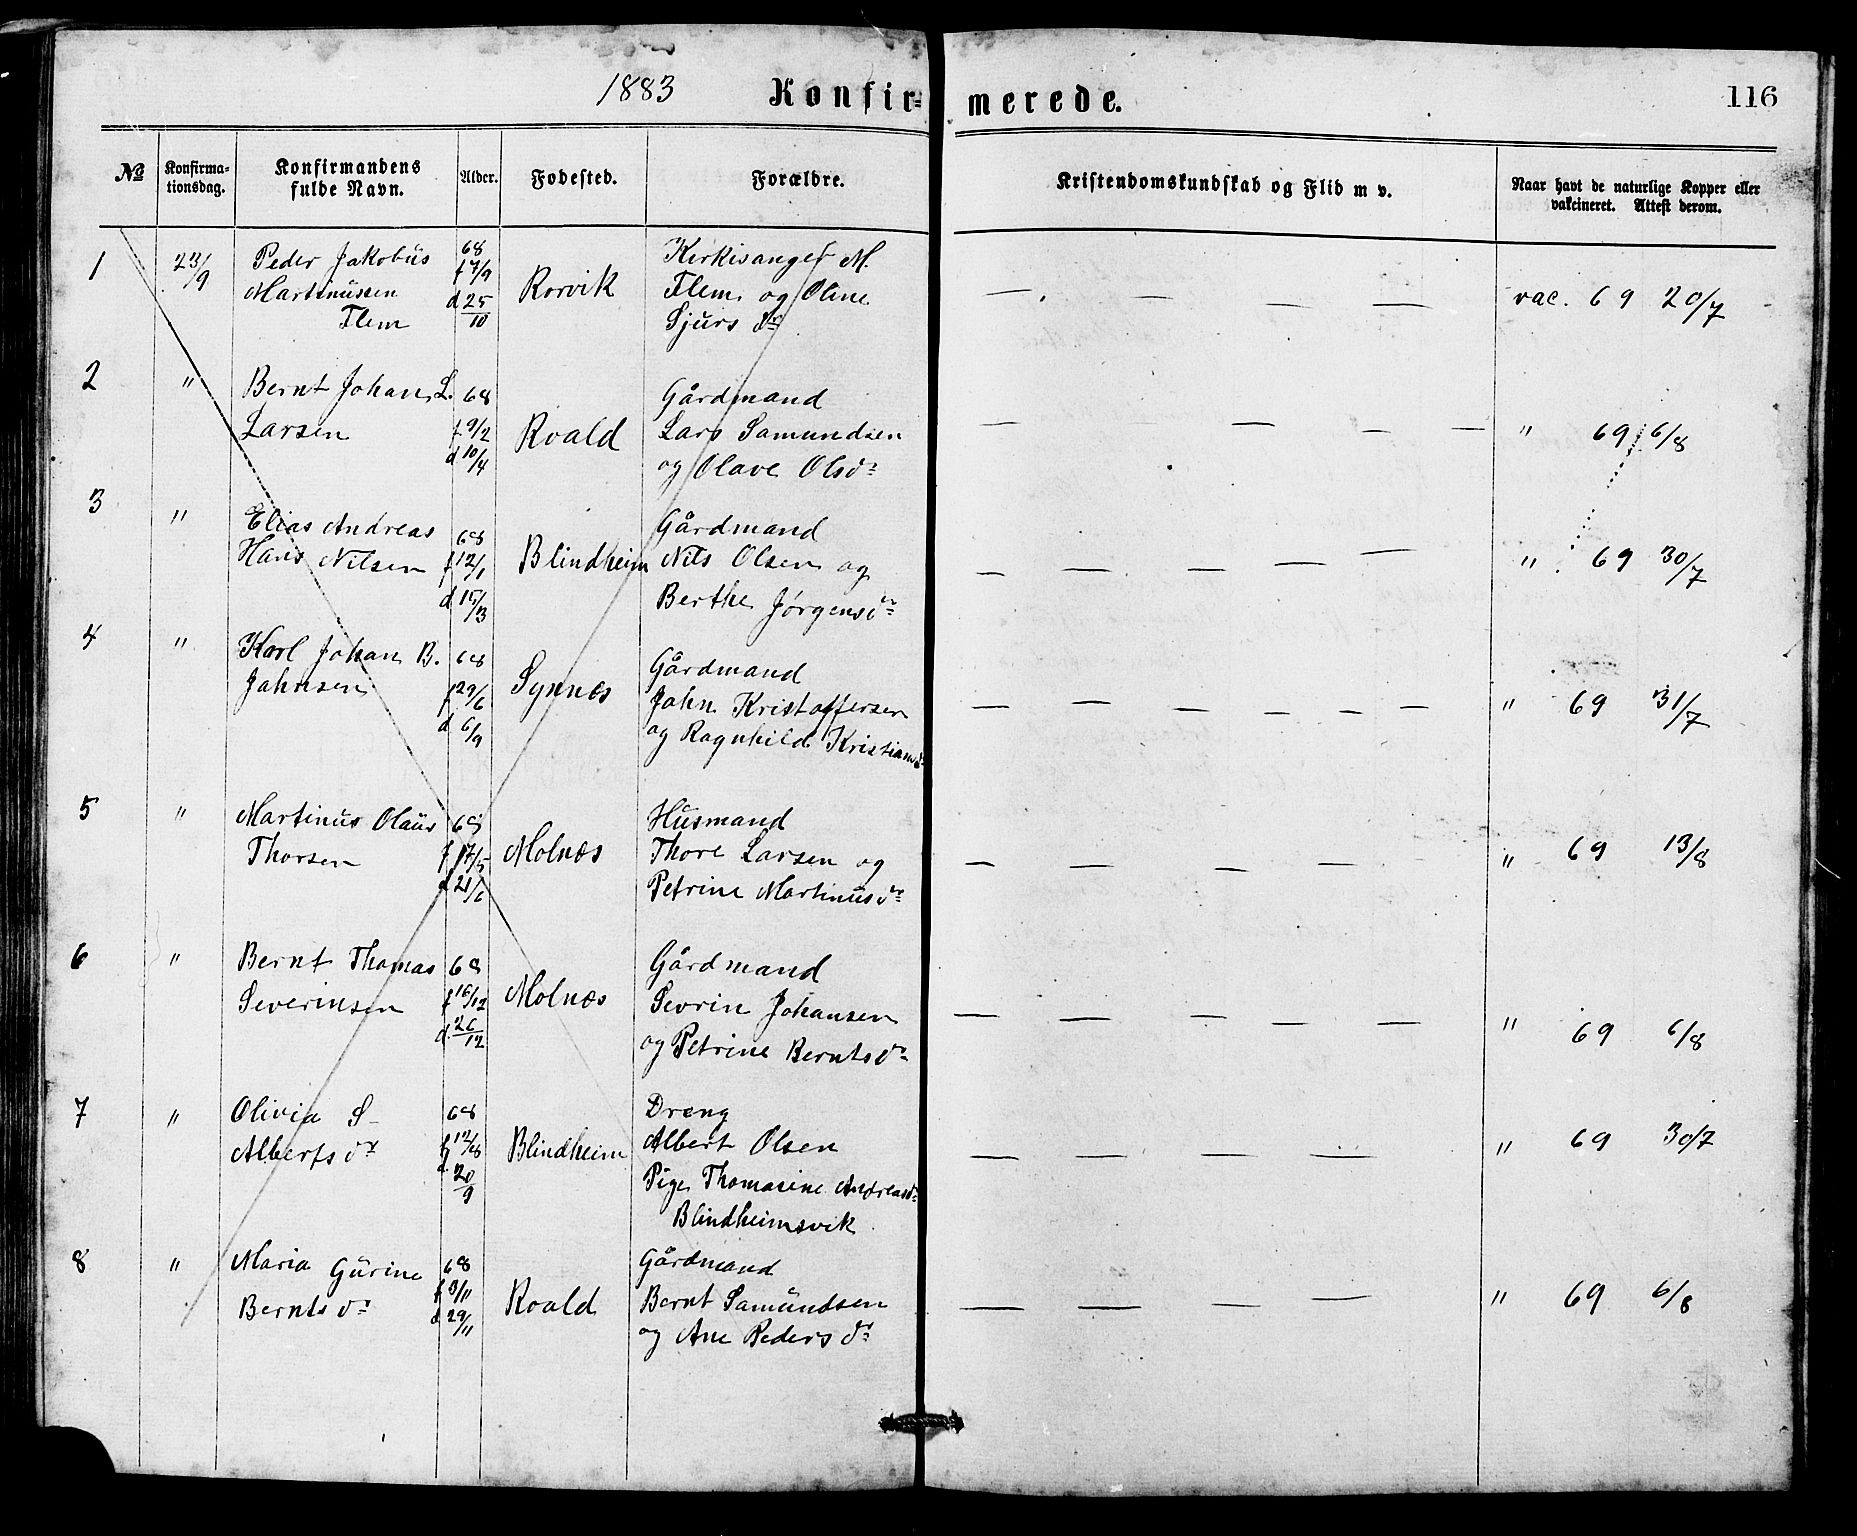 1883 Konfir- merede. 116
No Konfirma-tionsdag. Konfirmandens fulde Navn. Alder. Fødested. Forældre. Kristendomskundskab og Flid m v. Naar havt de naturlige Kopper eller vakcineret. Attest derom.
1 23/9 Peder Jakobüs 68 Kirkisanger M.
Martinüssen f 7/9 Rorvik Flem og Oline — — — — vac. 69 20/7
Flem d 25/10 Sjurs dr
2 " Bernt Johan L. 68 Gårdmand
Larsen f 9/2 Roald Lars Samundsen — — — — " 69 6/8
d 10/4 og Olave Olsdr
3 " Elias Andreas 68 Gårdmand
Hans Nilsen f 12/1 Blindheim Nils Olsen og — — — — — " 69 30/7
d 15/3 Berthe Jørgensdr
4 " Karl Johan B. 68 Gårdmand
Jahnsen f 29/6 Synnes Jahn Kristoffersen — — — — — — " 69 31/7
d 6/9 og Ragnhild Kristiansdr
5 " Martinus Olaüs 68 Hüsmand
Thorsen f 17/5 Molnæs Thore Larsen og — — — — " 69 13/8
d 21/6 Petrine Martinüsdr
6 " Bernt Thomas 68 Gårdmand
Severinsen f 16/12 Molnæs Sevrin Johansen — — — — — " 69 6/8
d 26/12 og Petrine Berntsdr
7 " Olivia S 68 Dreng
Alberts dr f 12/8 Blindheim Albert Olsen — — — — " 69 30/7
d 20/9 Pige Thomasine Andreasdr
Blindheimsvik
8 " Maria Gürine 68 Gårdmand
Bernts dr f 3/11 Roald Bernt Samündsen — — — — " 69 6/8
d 29/11 og Ane Peders dr